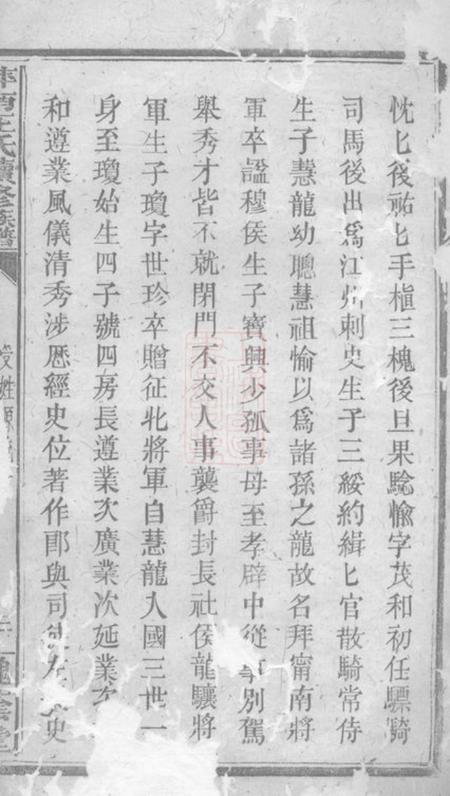 忱匕後祐匕手植三槐後旦果驗愉字茂和初任驃騎
司馬後出爲江州刺史生子三綏約緝匕官散騎常侍
生子慧龍幼聰慧祖愉以爲諸孫之龍故名拜甯南將
軍卒諡穆侯生子寶興少孤事母至孝辟中從事別駕
舉秀才皆不就閉門不交人事襲爵封長社侯龍驤將
軍生子瓊字世珍卒贈征北將軍自慧龍入國三世一
身至瓊始生四子號四房長遵業次廣業次延業次
和遵業風儀清秀涉厯經史位著作郎與司徒左史
王氏續修族譜
姓源
槐蔭堂